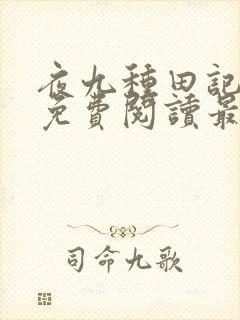 夜九種田記
免費閱讀最
司命九歌